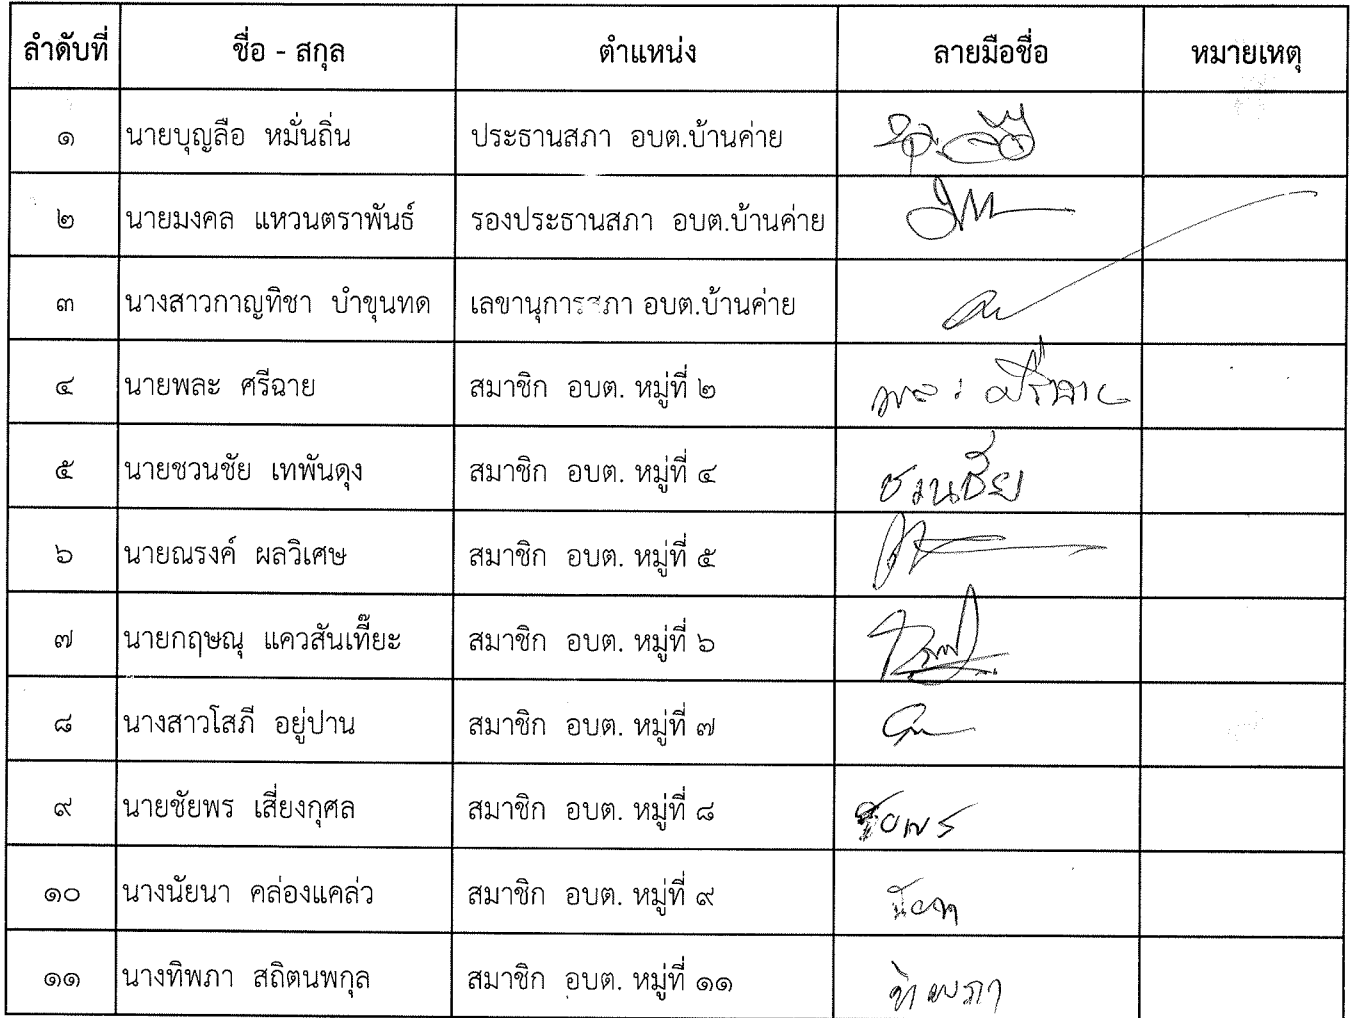 ลำดับที่ ชื่อ - สกุล ตำแหน่ง ลายมือชื่อ หมายเหตุ
๑ นายบุญลือ หมั่นถิ่น ประธานสภา อบต.บ้านค่าย
๒ นายมงคล แหวนตราพันธ์ รองประธานสภา อบต.บ้านค่าย
๓ นางสาวกาญทิชา บำขุนทด เลขานุการสภา อบต.บ้านค่าย
๔ นายพละ ศรีฉาย สมาชิก อบต. หมู่ที่ ๒ พละ ศรีฉาย
๕ นายชวนชัย เทพันดุง สมาชิก อบต. หมู่ที่ ๔ ชวนชัย
๖ นายณรงค์ ผลวิเศษ สมาชิก อบต. หมู่ที่ ๕
๗ นายกฤษณุ แควสันเที๊ยะ สมาชิก อบต. หมู่ที่ ๖
๘ นางสาวโสภี อยู่ปาน สมาชิก อบต. หมู่ที่ ๗
๙ นายชัยพร เสี่ยงกุศล สมาชิก อบต. หมู่ที่ ๘ ชัยพร
๑๐ นางนัยนา คล่องแคล่ว สมาชิก อบต. หมู่ที่ ๙ นัยนา
๑๑ นางทิพภา สถิตนพกุล สมาชิก อบต. หมู่ที่ ๑๑ ทิพภา